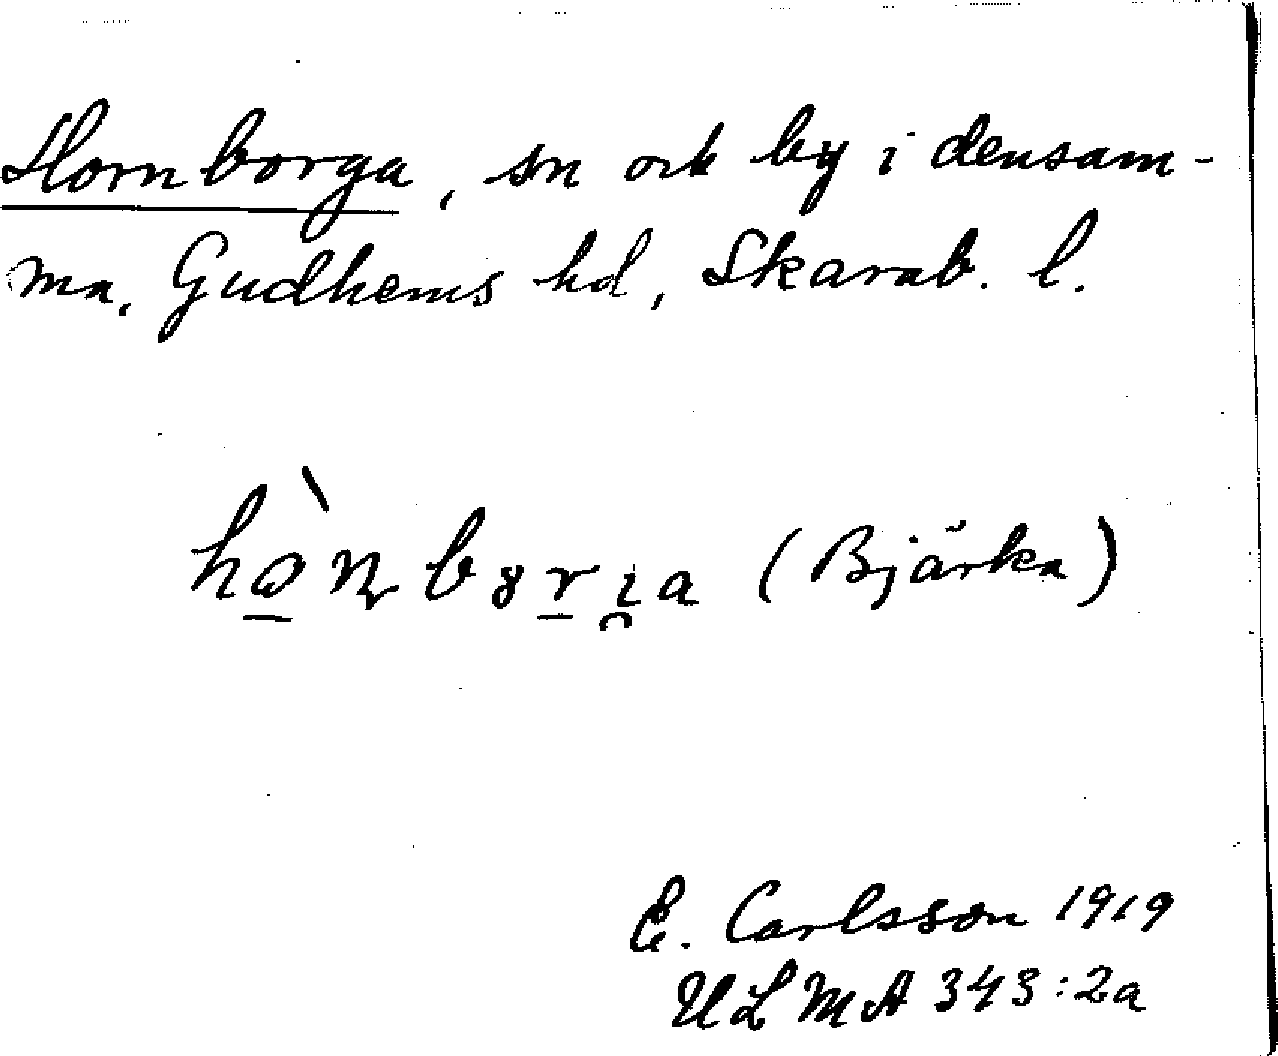 Hornborga, sn och by i densam-
ma, Gudhems hd, Skarab. l.
(Bjärka)
E. Carlsson 1919
ULMA 343:2a